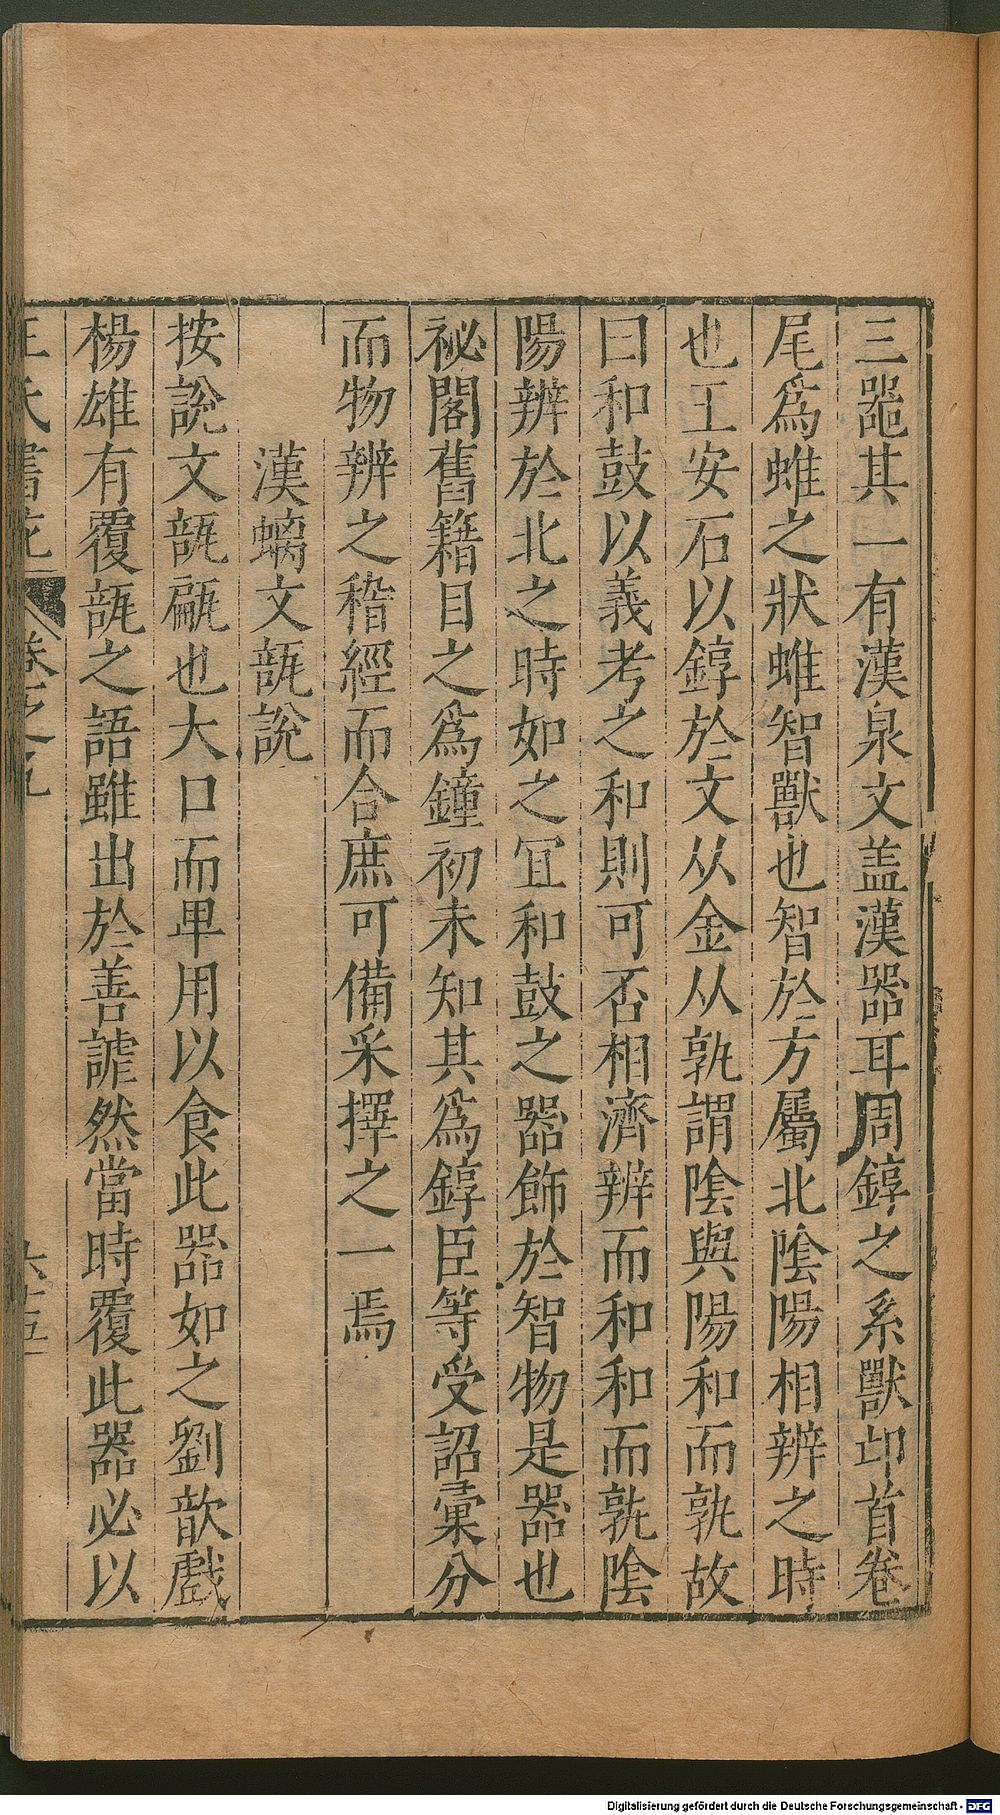 三器其一有漢泉文盖漢器耳周錞之系獸卬首卷
尾爲蜼之狀蜼智獸也智於方屬北陰陽相辨之時
也王安石以錞於文从金从孰謂陰與陽和而孰故
曰和鼓以義考之和則可否相濟辨而和和而孰陰
陽辨於北之時如之冝和鼓之器飾於智物是器也
祕閣舊籍目之爲鐘初未知其爲錞臣等受詔彙分
而物辨之稽經而合庶可備采擇之一焉
漢螭文瓿說
按說文瓿㼐也大口而卑用以食此器如之劉歆戲
楊雄有覆瓿之語雖出於善謔然當時覆此器必以
王氏書苑 卷之九 六十五
Digitalisierung gefördert durch die Deutsche Forschungsgemeinschaft - DFG